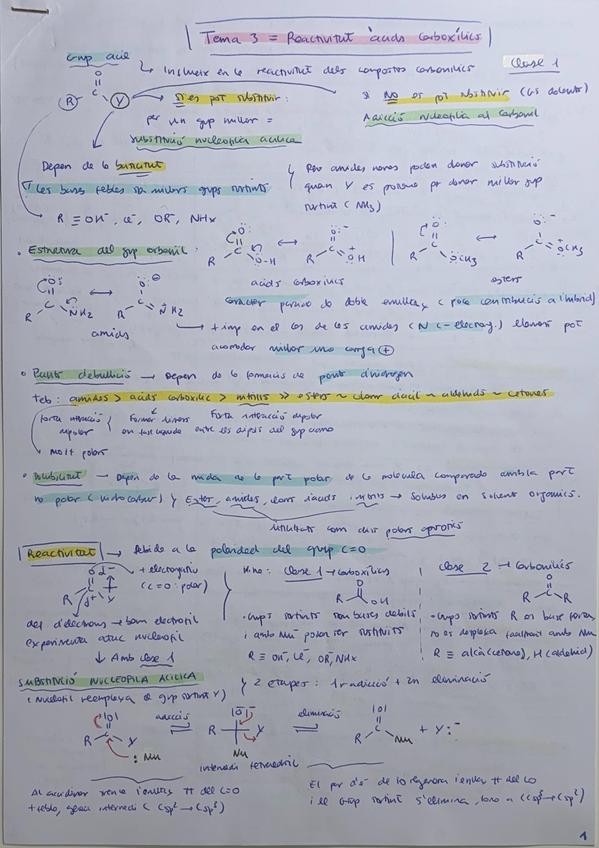 Tema 3 = Reactivitat àcids carboxílics
Grup acil
↳ Influeix en la reactivitat dels compostos carbonílics
Classe 1
O
R C Y
Sí es pot substituir:
per un grup millor =
substitució nucleòfila acílica
Si NO es pot substituir
Addició nucleòfila al carbonil
Depen de la basicitat
Les bases febles són millors grups sortints
Però amides només poden donar substitució
quan Y es protona per donar millor grup
sortint (NH3)
R ≡ OH⁻, Cl⁻, OR⁻, NHx
• Estructura del grup carbonil:
àcids carboxílics
esters
caràcter parcial de doble enllaç, (poca contribució a l'híbrid)
amides
+ imp en el cas de les amides (N (-electroneg.) llavors pot
acomodar millor una carga ⊕
• Punts d'ebullició → Depen de la formació de ponts d'hidrogen
Teb: amides > àcids carboxílic > nitrils >> esters ~ clorur d'acil ~ aldehids ~ cetones
Forta interacció
dipolar
Forta interacció dipolar
entre els dipols del grup ciano
molt polars
• Solubilitat → Depen de la mida de la part polar de la molècula comparada amb la part
no polar (hidrocarbur) y Esters, amides, clorurs d'àcids i nitrils → Solubles en solvents orgànics.
utilitzats com dis. polars apròtics
Reactivitat → Debido a la polaridad del grup C=O
+ electronegatiu
(C=O: polar)
def d'electrons → bon electròfil
experimenta atac nucleòfil
↓ Amb classe 1
Classe 1 → carboxílics
R OH
• Grups sortints són bases dèbils
i amb Nu⁻ poden ser substituïts
R ≡ OH⁻, Cl⁻, OR⁻, NHx
Classe 2 → Carbonílics
O
R R
• Grups sortints R⁻ en base fortes
no es desplaça fàcilment amb Nu
R ≡ alcà (cetona), H (aldehid)
SUBSTITUCIÓ NUCLEÒFILA ACÍLICA
(Nucleòfil reemplaça el grup sortint Y)
y 2 etapes: 1r addició + 2n eliminació
R Y
:Nu
addició
R Y
Nu
intermedi tetraèdric
eliminació
R Nu + Y:⁻
Al addicionar trenca l'enllaç π del C=O
+ feble, genera intermedi (Csp² → Csp³)
El par d'e⁻ de l'O regenera l'enllaç π del CO
i el grup sortint s'elimina, torna a (Csp³ → Csp²)
1